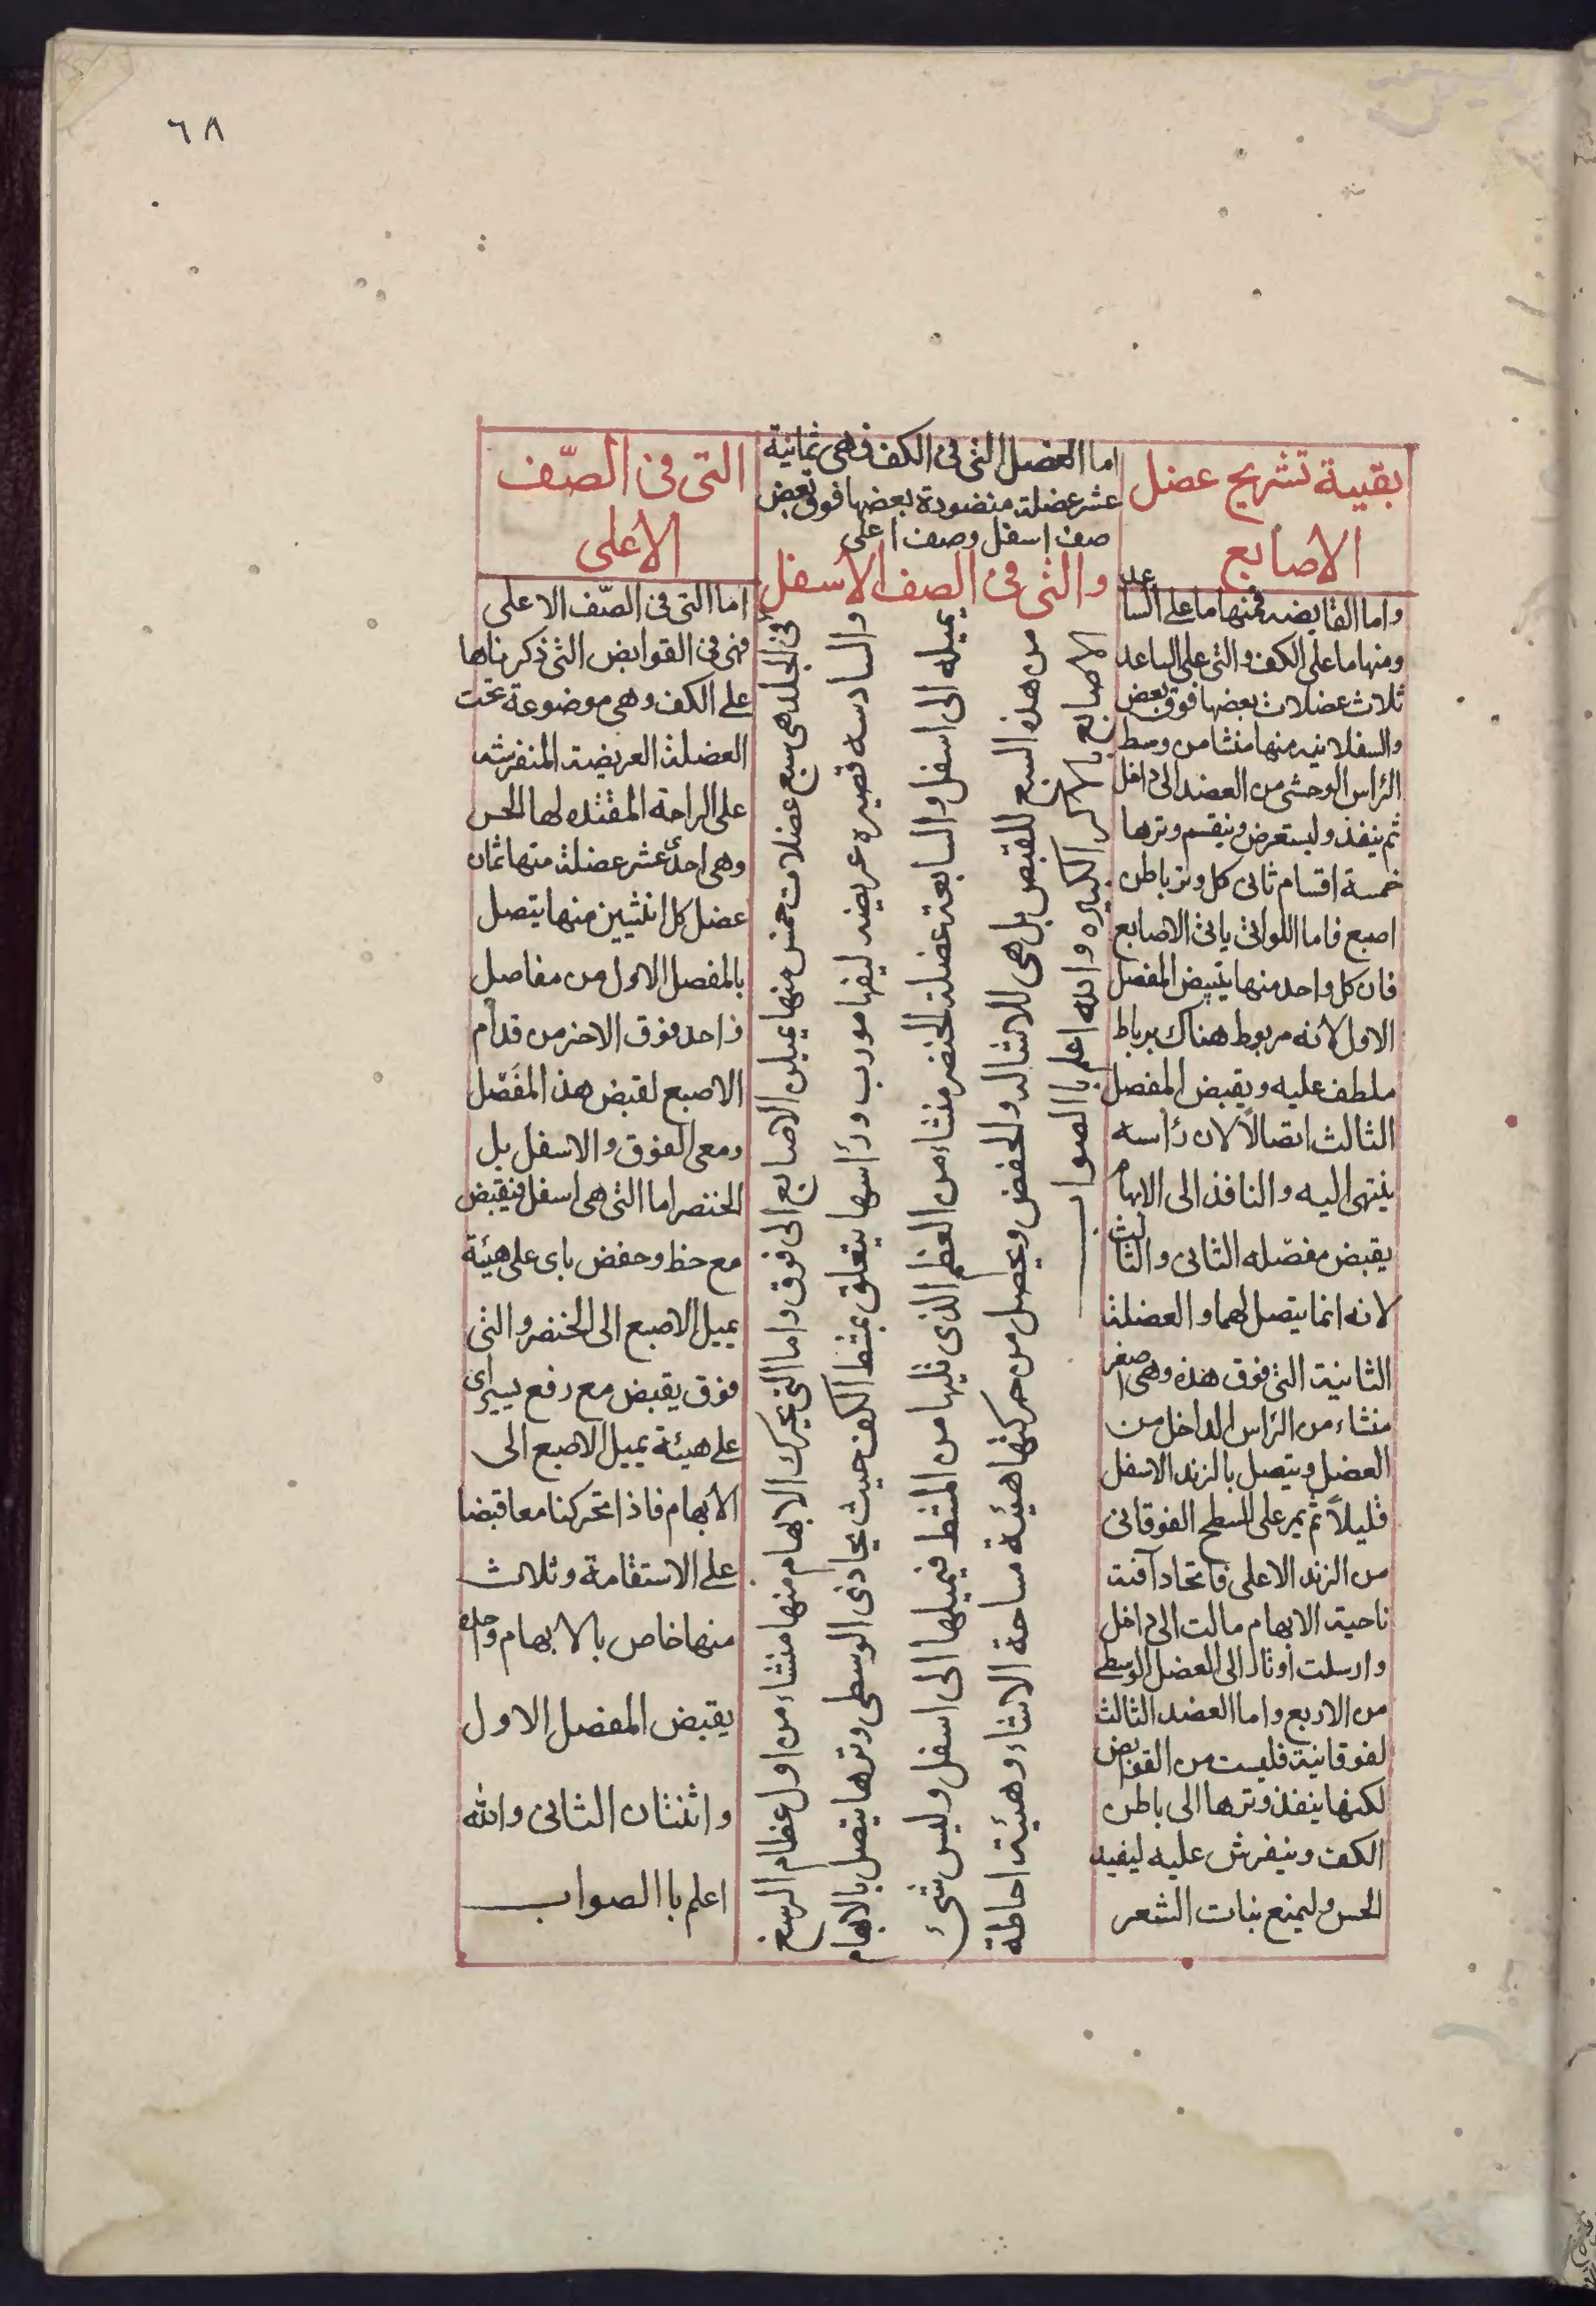 ٦٨
بقيية تشريح عضل
الاصابع
واما القابضه فمنها ما على الساعد
ومنها ما على الكف والتى على الساعد
ثلاث عضلات بعضها فوق بعض
والسفلانيه منها منشا من وسط
الرٔاس الوحشى من العضد الى داخل
ثم ينفذ وليستعرض وينقسم وترها
خمسة اقسام ثانى كل وتر باطن
اصبع فاما اللواتى ياتى الاصابع
فان كل واحد منها يقبض المفصل
الاول لانه مربوط هناك برباط
ملطف عليه ويقبض المفصل
الثالث اتصالاً لان رٔاسه
ينتهى اليه والنافذ الى الابهام
يقبض مفصّله الثانى والثالث
لانه انما يتصل لهما والعضلة
الثانية التى فوق هذه وهى اصغر
منشاء من الرٔاس الداخل من
العضل ويتصل بالزند الاسفل
قليلاً ثم يمر على السطح الفوقانى
من الزند الاعلى فاتحاد آفنت
ناحية الابهام مالت الى داخل
وارسلت اوتار الى العضل الوسطى
من الاربع واما العضد الثالث
لفوقانية فليست من القوابض
لكنها ينفذ وترها الى باطن
الكف وينفرش عليه ليفيد
الحس وليمنع نبات الشعر
اما العضل التى فى الكف فهى ثمانية
عشر عضلة منضودة بعضها فوق بعض
صف اسفل وصف اعلى
والتى فى الصف الاسفل
فى الجلد هى سبع عضلات خمس منها يميلن الاصابع الى فوق واما التى يحرك الابهام منها منشاء من اول عظام الرسغ
والسادسه قصيره عريضه ليفها مورب ورٔاسها يتعلق بمشط الكف حيث يحاذى الوسطى وترها يتصل بالابهام
يميله الى اسفل والسابعة عضلة الخنصر منشاء من العظم الذى يليها من المشط فيميلها الى اسفل وليس شئ
من هذه السبع للقبض بل هى للاشاله والخفض ويحصل من حركتها هيئة مساحة الاشاء وهيئة احاطة
الاصابع بالاكر الكبيره والله اعلم باالصواب
التى فى الصّف
الاعلى
اما التى فى الصّف الاعلى
فهى فى القوابض التى ذكرناها
على الكف وهى موضوعة تحت
العضلة العريضة المنفرشه
على الراحة المفتده لها الحس
وهى احدٔ عشر عضلة منها ثمان
عضل كل اثنثين منها يتصل
بالمفصل الاول من مفاصل
واحد فوق الاخر من قدام
الاصبع لقبض هذ المفَصّل
ومعى الفوق والاسفل بل
الخنصر اما التى هى اسفل فيقبض
مع حظ وحفض باى على هيئة
يميل الاصبع الى الخنصر والتى
فوق يقبض مع رفع يسير اى
على هيئة يميل الاصبع الى
الابهام فاذا تحركنا معا قبضا
على الاستقامة وثلاث
منها خاص بالابهام وحده
يقبض المفصل الاول
واثنثان الثانى والله
اعلم باالصواب